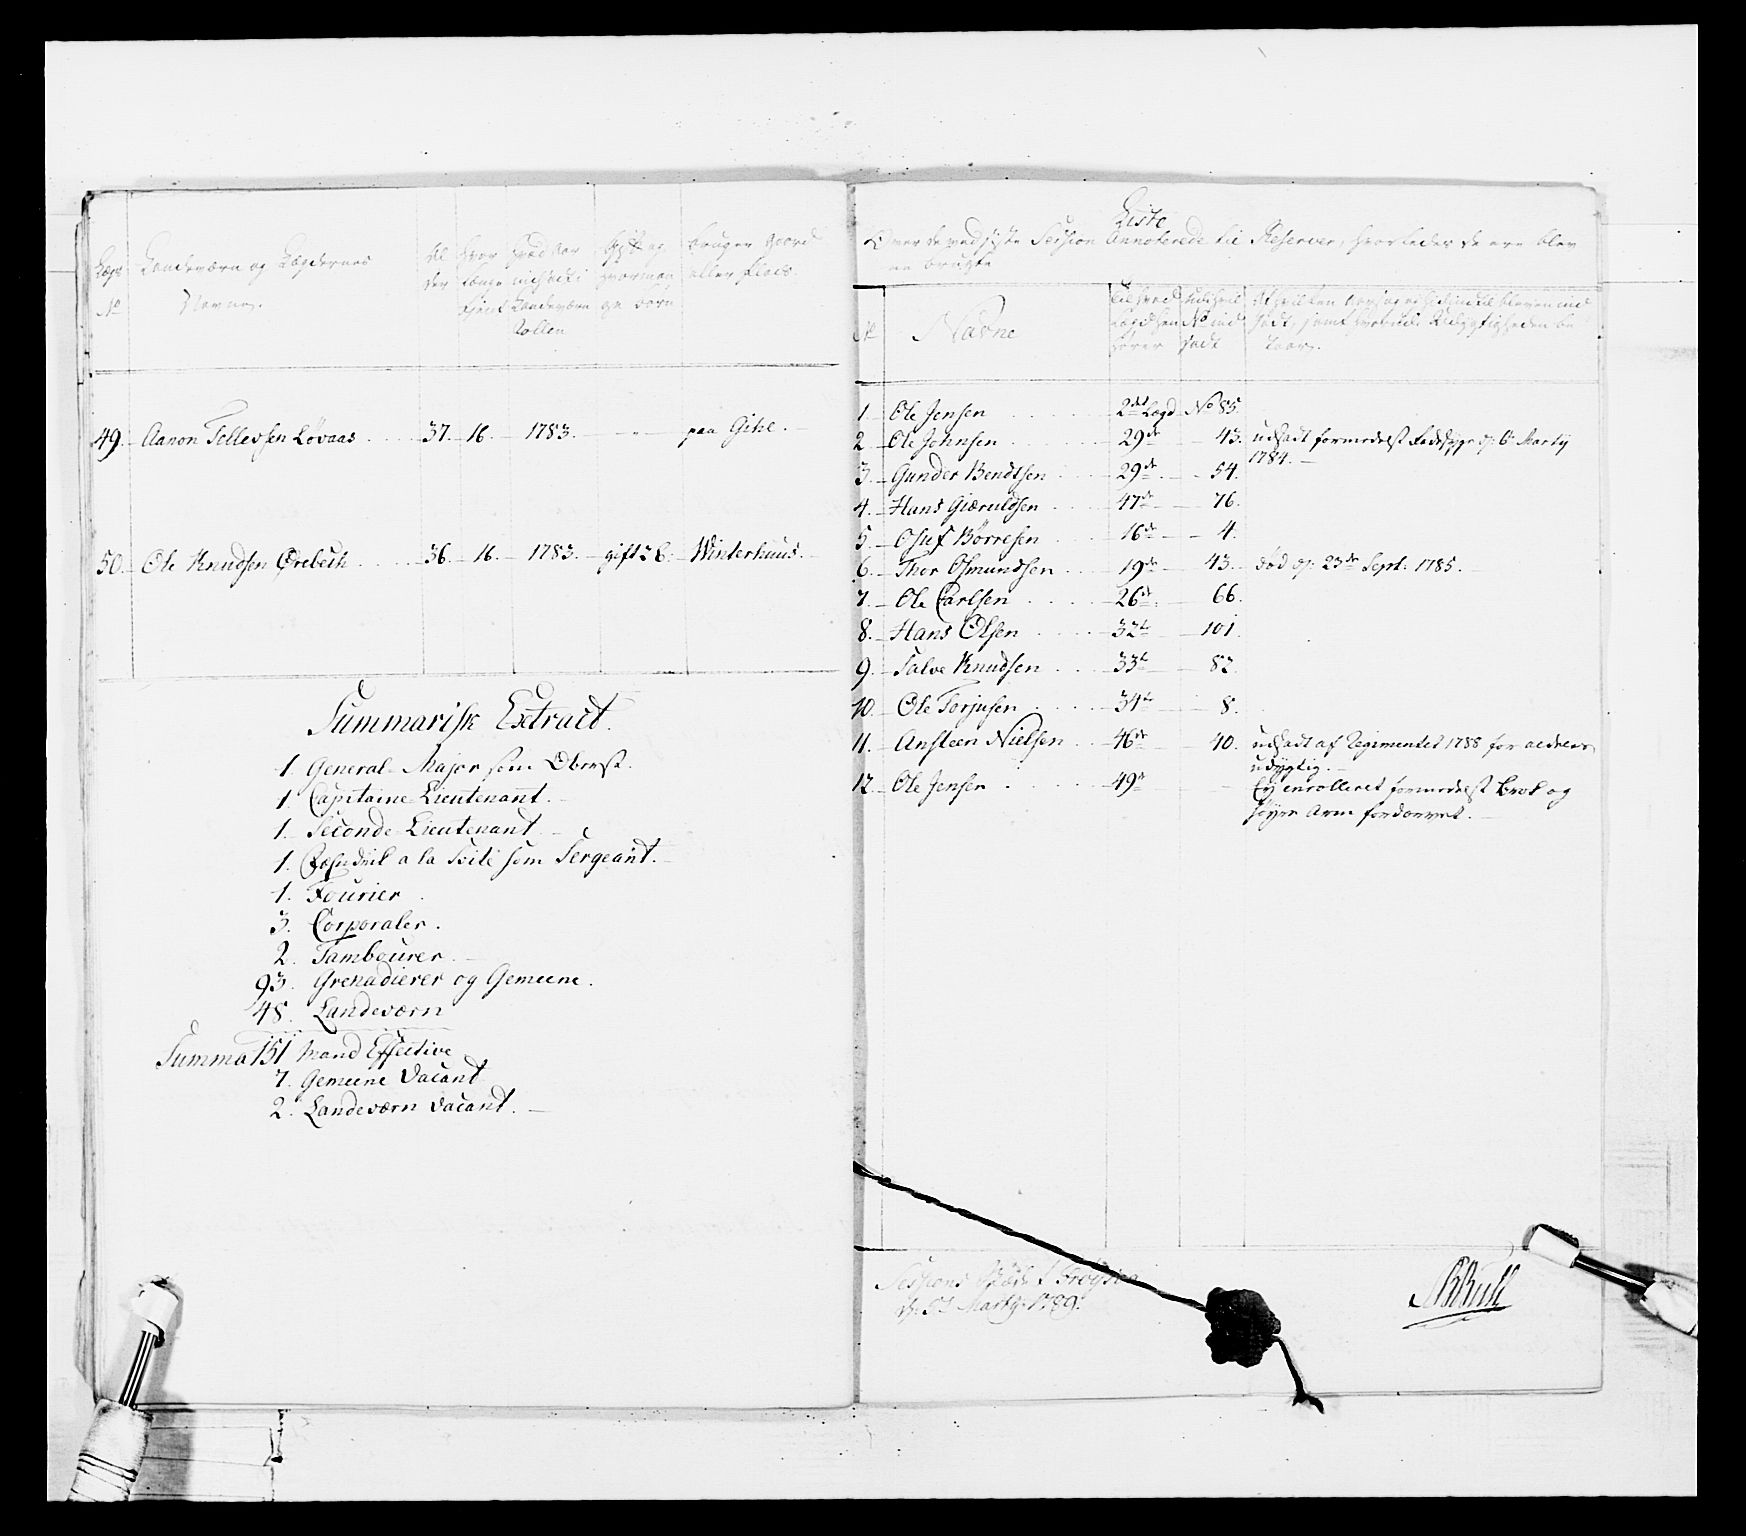 Lægs No
Landeværn og Lægdernes Navne.
Al der
hvor længe tient
hvad Aar indsadt i Landeværn Rollen
Gift og hvormange Børn
bruger Gaard eller Plads.
49. Aanon Tellefsen Løvaas 37. 16. 1783. paa Gihe.
50. Ole Knudsen Örebech 36. 16. 1783. gift 3 B. Winterhuus.
Summarisk Extract.
1. General-Major som Oberst.
1. Capitaine-Lieutenant.
1. Seconde-Lieutenant.
1. a la Svite som Sergeant.
1. Fourier.
3. Corporaler.
2. Tambourer.
93. Grenadierer og Gemeene.
48. Landeværn
Summa 151 Mand Effective
7. Gemeene Vacant
2. Landeværn Vacant.
Liste
Over de ved sidste Session Annoterede til Reserver, hvorledes de ere blev
en brugte
No
Navne
Til hvad Lægd hen hører
udi hvil No ind sadt
1. Ole Jensen 2det Lægd No 85.
2. Ole Johnsen 29de 43. udsadt formedelst Radesyge d: 6 Martij
1784.
3. Gunder Bendtsen 29de 54.
4. Hans Giæruldsen 47de 76.
5. Osuf Börresen 16de 4.
6. Thor Osmundsen 19de 43. död d: 23de Sept: 1785.
7. Ole Carlsen 26de 66.
8. Hans Olsen 32te 101.
9. Salve Knudsen 33te 82.
10. Ole Torjusen 34te 8.
11. Ansteen Nielsen 46de 40. udsadt af Regimentet 1788 for aldeles
udygtig.
12. Ole Jensen 49de Ej enrolleret formedelst Brok og
høyre Arm fordærvet.
Sessions
Martij 1789.
Bull